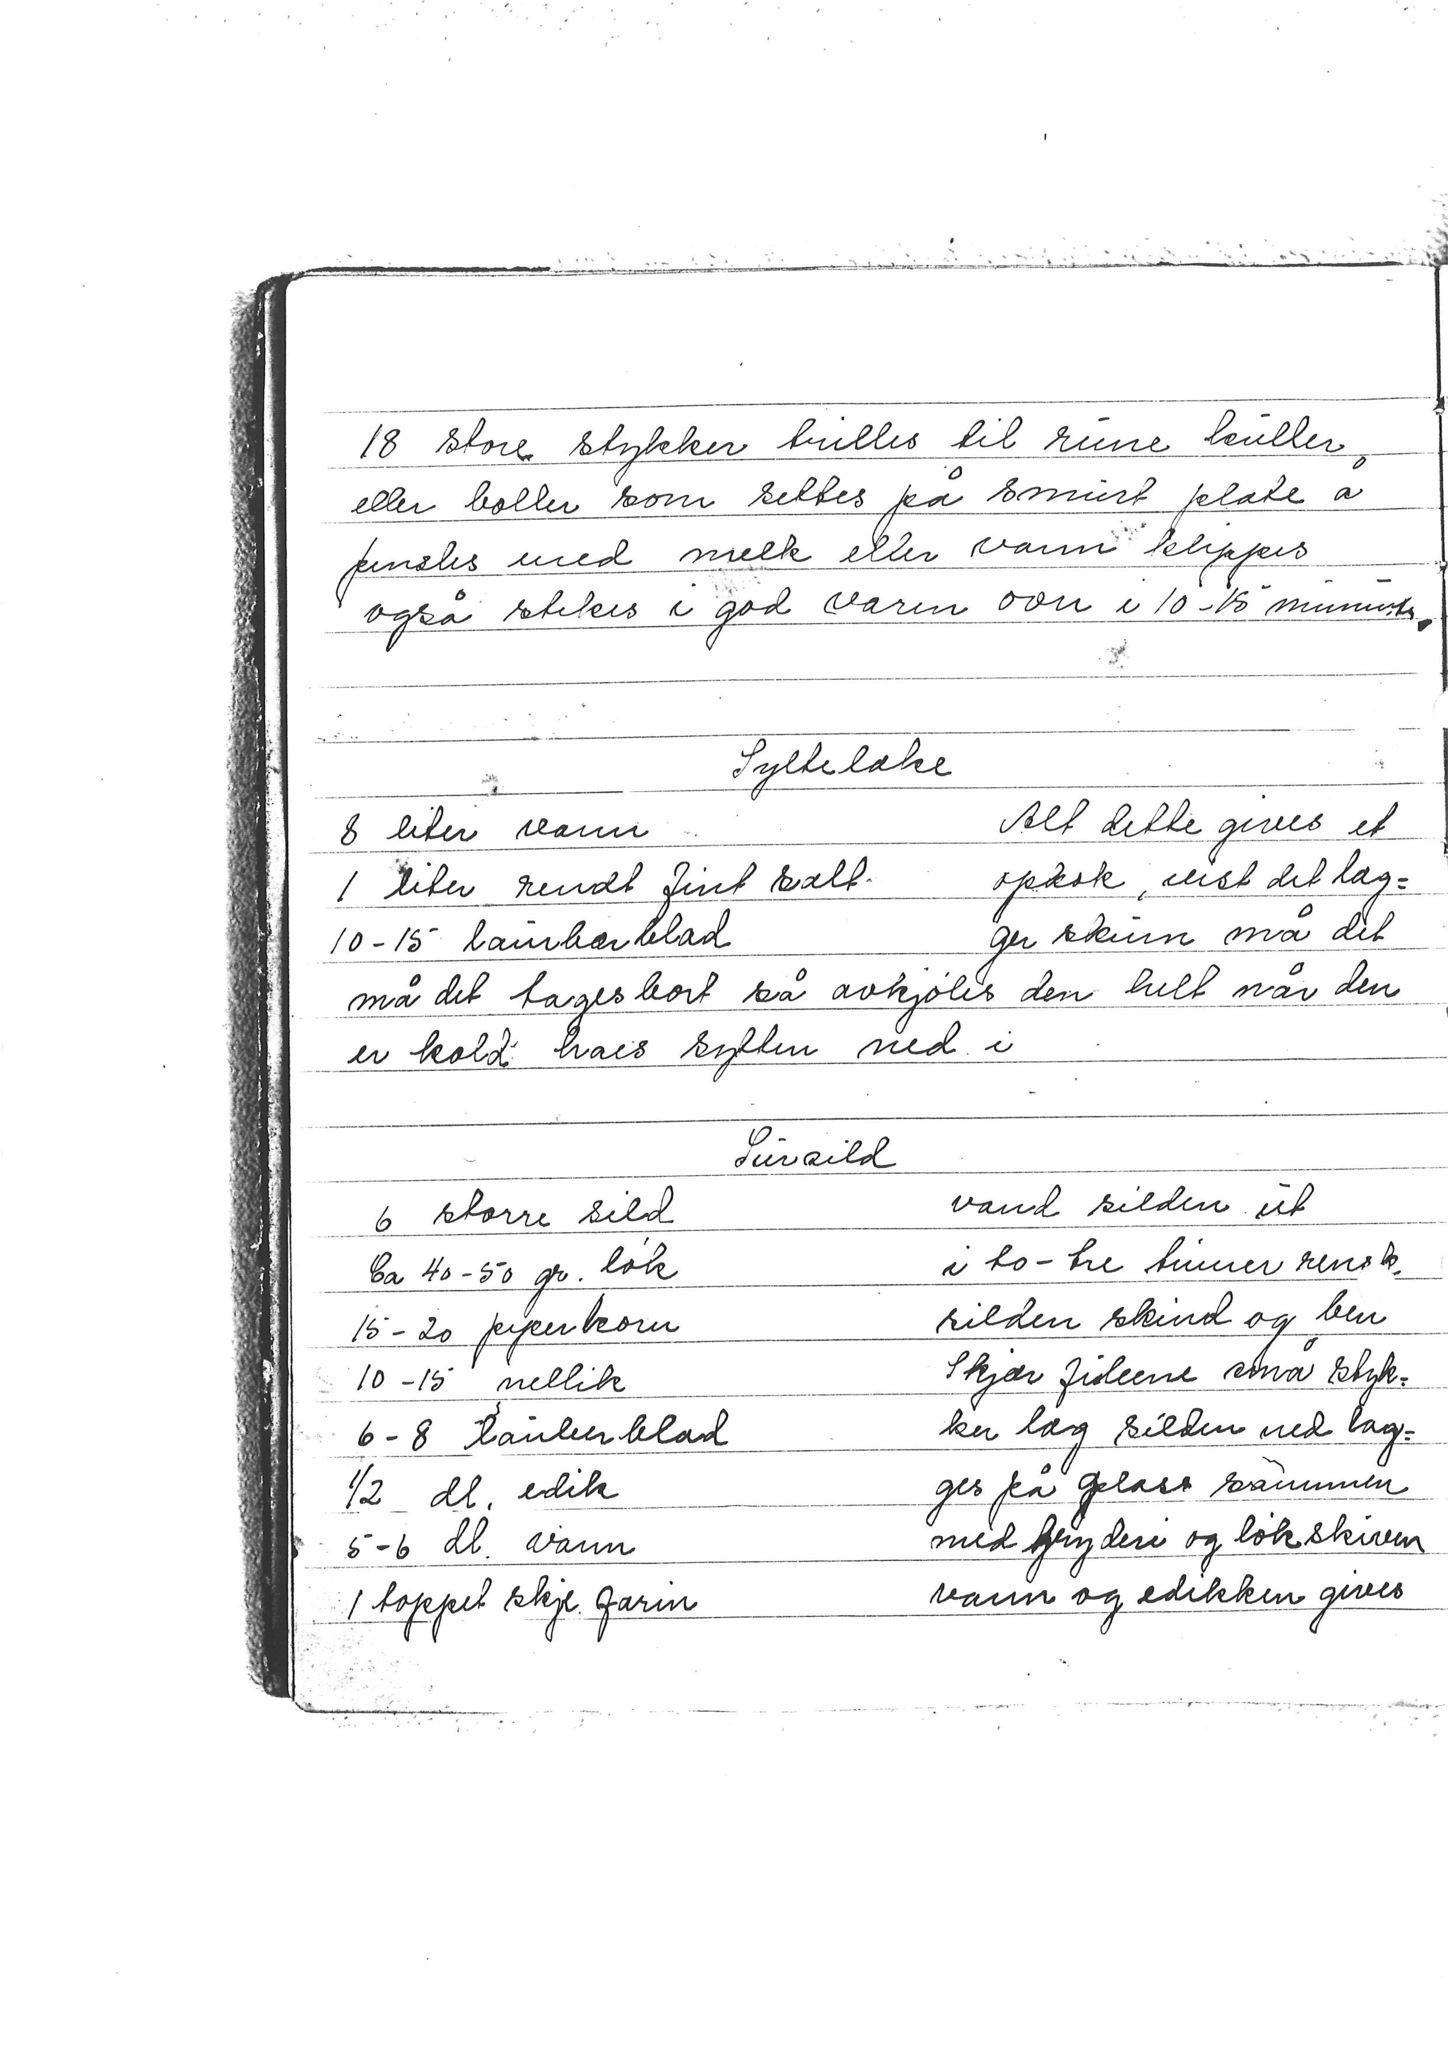 18 store stykker trilles til rune kuller
eller boller som settes på smurt plate å
pensles med melk eller vann klippes
også stekes i god varm ovn i 10-15 minutter.
Syltelake
8 liter vann
1 liter rendt fint salt.
10-15 laurbærblad
Alt dette gives et
opkok, vist det læg=
ger skum må det
må det tages bort så avkjöles den helt når den
er kold haes sylten ned i
Sursild
6 storre sild
Ca 40-50 gr. lök
15-20 peperkorn
10-15 nellik
6-8 laurberblad
1/2 dl. edik
5-6 dl. vann
1 toppet skje farin
vand silden ut
i to-tre timer rensk.
silden skind og ben
Skjær fileene små styk=
ker læg silden ned læg=
ges på glass sammen
med kryderi og lök skiven
vann og edikken gives